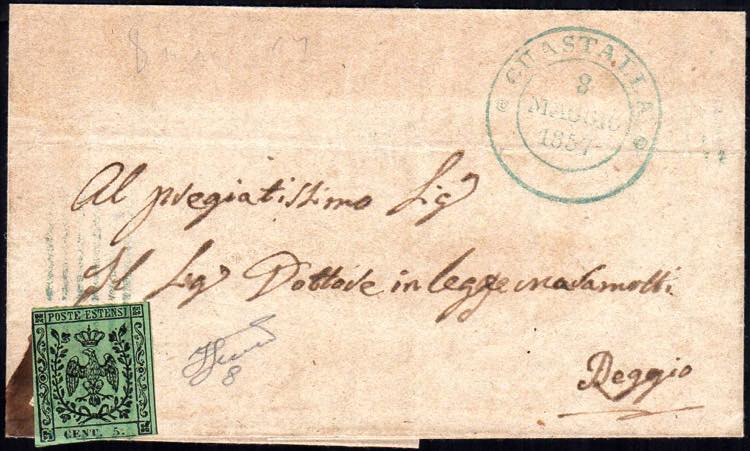 GUASTALLA
8
MAGGIO
1857
Al pregiatissimo Sigr
Il Sigr Dottore in legge
Reggio
POSTE ESTENSI
CENT. 5.
8